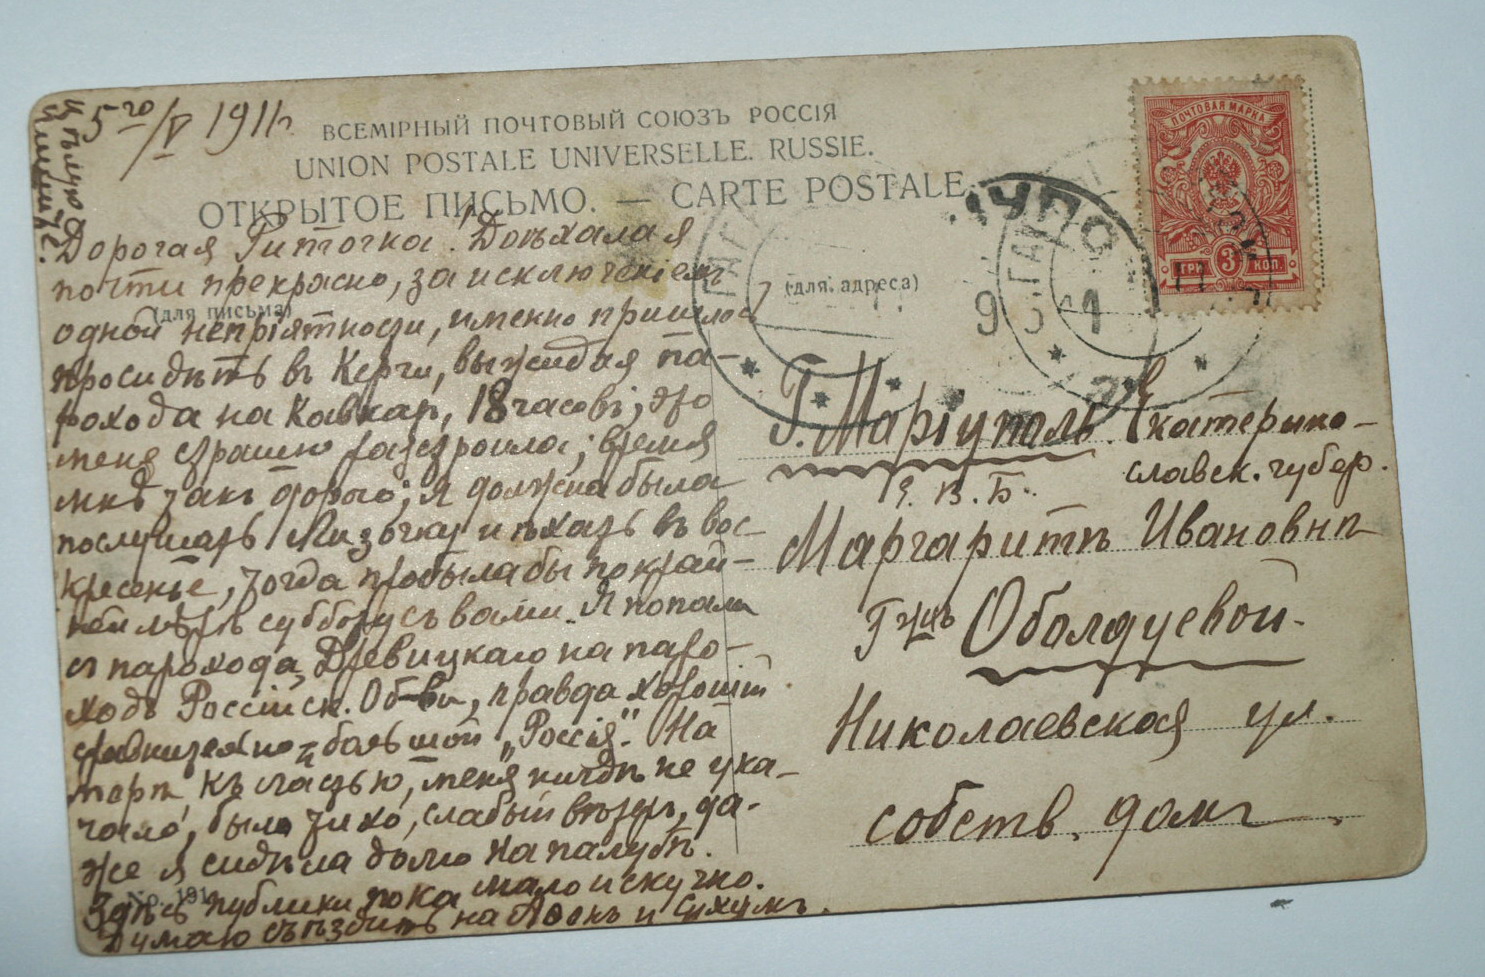 5го/V 1911г.
ВСЕМІРНЫЙ ПОЧТОВЫЙ СОЮЗЪ РОССІЯ
UNION POSTALE UNIVERSELLE. RUSSIE.
ОТКРЫТОЕ ПИСЬМО. — CARTE POSTALE
ПОЧТОВАЯ МАРКА
ТРИ 3 КОП.
(для письма)
(для адреса)
Дорогая Риточка! Доѣхала я
почти прекрасно, за исключеніемъ
одной непріятности, именно пришлось
просидѣть въ Керчи, выжидая па-
рохода на Кавказъ, 18 часовъ; это
меня страшно разстроило; время
мнѣ такъ дорого; я должна была
послушать Лизочку и ѣхать въ вос-
кресенье, тогда пробыла бы по край-
ней мѣрѣ субботу съ вами. Я попала
съ парохода Древицкаго на паро-
ходъ Россійск. Об-ва, правда хорошій
сравнительно и большой „Россія". На
морѣ, къ счастью, меня нигдѣ не ука-
чало, было тихо, слабый вѣтеръ, да-
же я сидѣла долго на палубѣ.
Здѣсь публики пока мало и скучно.
Думаю съѣздить на Афонъ и Сухумъ.
Цѣлую
Г. Маріуполь. Екатерино-
славск. губер.
Е. В. Б.
Маргаритѣ Ивановнѣ
Гжѣ Оболдуевой
Николаевская ул.
собств. домъ